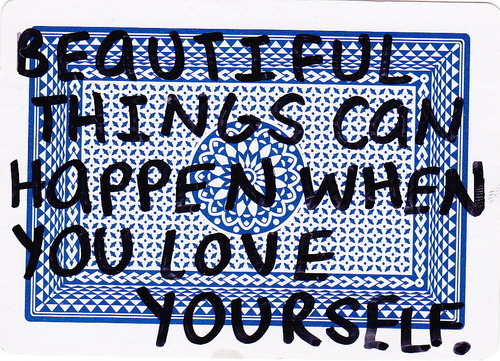 BEAUTIFUL
THINGS CAN
HAPPEN WHEN
YOU LOVE
YOURSELF.